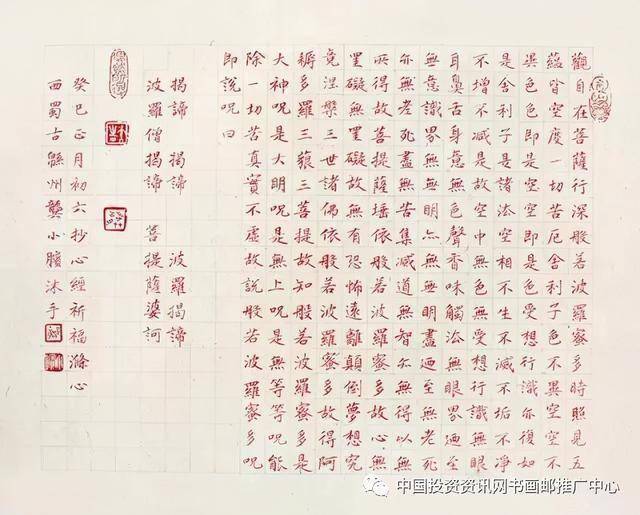 觀自在菩薩行深般若波羅蜜多時照見五
蘊皆空度一切苦厄舍利子色不異空空不
異色色即是空空即是色受想行識亦復如
是舍利子是諸法空相不生不滅不垢不淨
不增不減是故空中無色無受想行識無眼
耳鼻舌身意無色聲香味觸法無眼界迺至
無意識界無無明亦無無明盡迺至無老死
亦無老死盡無苦集滅道無智亦無得以無
所得故菩提薩埵依般若波羅蜜多故心無
罣礙無罣礙故無有恐怖遠離顛倒夢想究
竟涅槃三世諸佛依般若波羅蜜多故得阿
耨多羅三藐三菩提故知般若波羅蜜多是
大神呪是大明呪是無上呪是無等等呪能
除一切苦真實不虛故說般若波羅蜜多呪
即說呪曰
揭諦 揭諦 波羅揭諦
波羅僧揭諦 菩提薩婆訶
癸巳正月初六抄心經祈福滌心
西蜀古緜州龔小沐手
中国投资资讯网书画邮推广中心